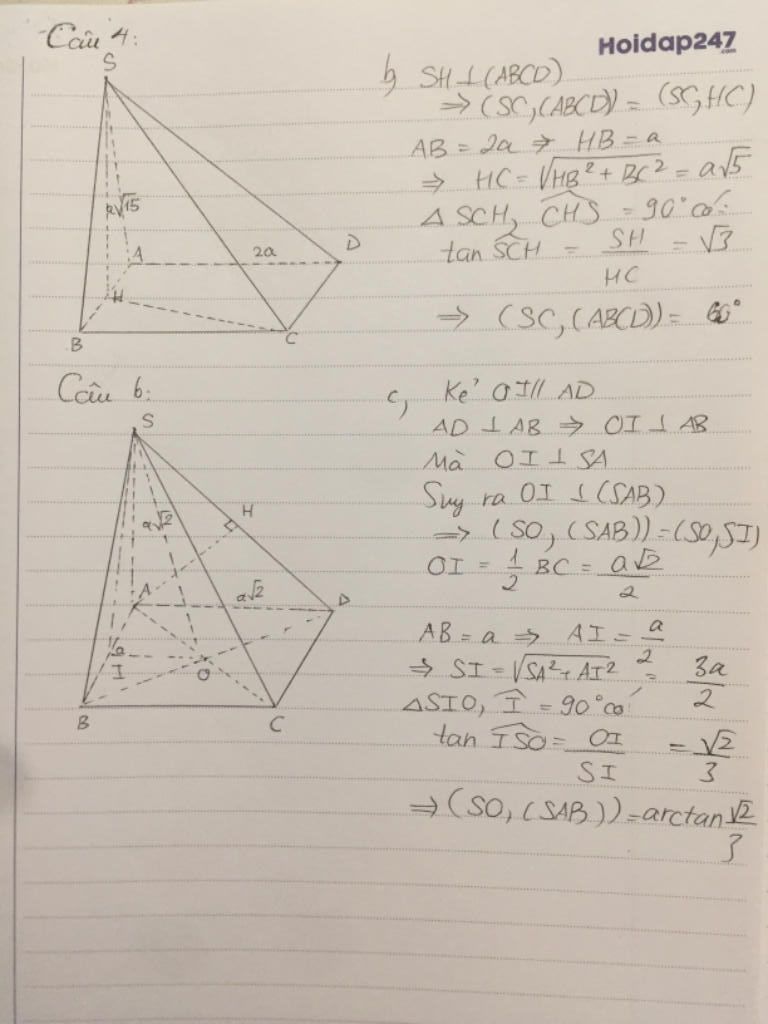 Câu 4:
Hoidap247
.com
S
a√15
A
2a
D
H
B
C
b, SH ⊥ (ABCD)
⇒ (SC, (ABCD)) = (SC, HC)
AB = 2a ⇒ HB = a
⇒ HC = √(HB² + BC²) = a√5
Δ SCH, ĈHS = 90° có:
tan ŜCH = SH/HC = √3
⇒ (SC, (ABCD)) = 60°
Câu 6:
S
a√2
H
A
a√2
D
a
I
O
B
C
c, Kẻ OI // AD
AD ⊥ AB ⇒ OI ⊥ AB
Mà OI ⊥ SA
Suy ra OI ⊥ (SAB)
⇒ (SO, (SAB)) = (SO, SI)
OI = 1/2 BC = a√2/2
AB = a ⇒ AI = a/2
⇒ SI = √(SA² + AI²) = 3a/2
ΔSIO, Î = 90° có
tan ÎSO = OI/SI = √2/3
⇒ (SO, (SAB)) = arctan √2/3